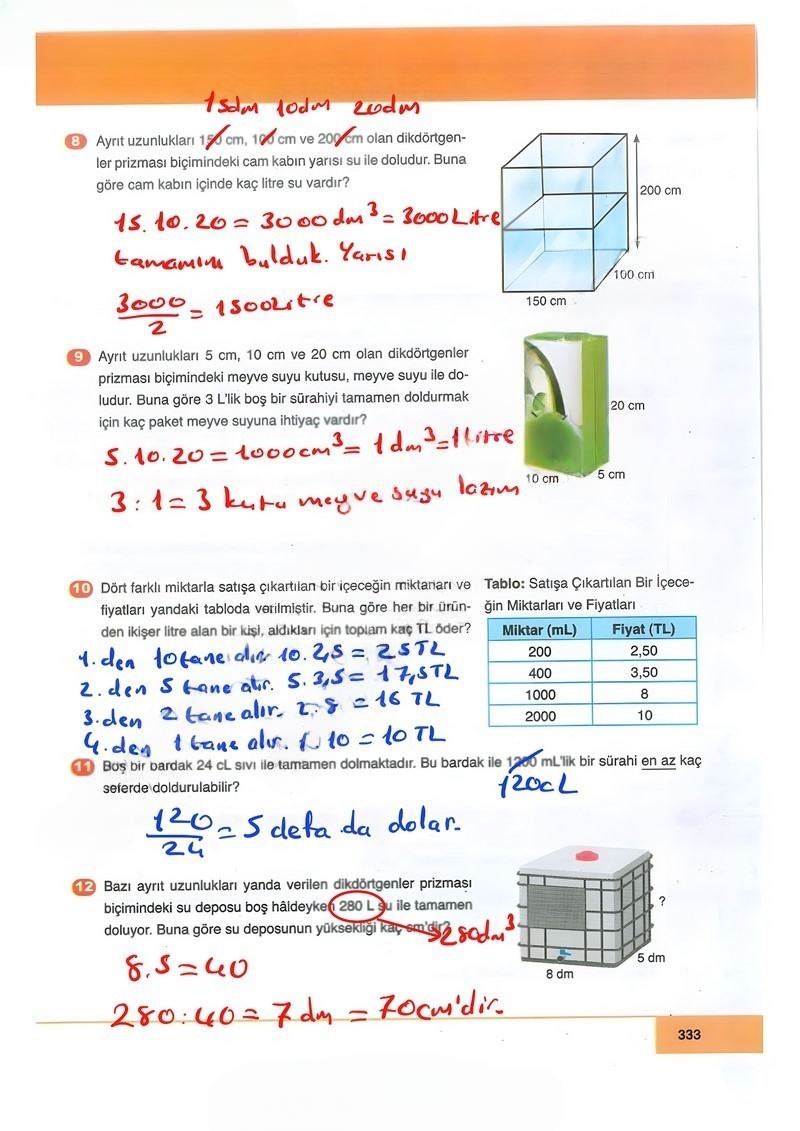 15dm 10dm 20dm
8 Ayrıt uzunlukları 150 cm, 100 cm ve 200 cm olan dikdörtgen-
ler prizması biçimindeki cam kabın yarısı su ile doludur. Buna
göre cam kabın içinde kaç litre su vardır?
200 cm
100 cm
150 cm
15.10.20 = 3000 dm³ = 3000 Litre
tamamını bulduk. Yarısı
3000
2
= 1500Litre
9 Ayrıt uzunlukları 5 cm, 10 cm ve 20 cm olan dikdörtgenler
prizması biçimindeki meyve suyu kutusu, meyve suyu ile do-
ludur. Buna göre 3 L'lik boş bir sürahiyi tamamen doldurmak
için kaç paket meyve suyuna ihtiyaç vardır?
20 cm
10 cm
5 cm
5.10.20 = 1000cm³ = 1 dm³ = 1 litre
3 : 1 = 3 kutu meyve suyu lazım
10 Dört farklı miktarla satışa çıkartılan bir içeceğin miktarları ve
fiyatları yandaki tabloda verilmiştir. Buna göre her bir ürün-
den ikişer litre alan bir kişi, aldıkları için toplam kaç TL öder?
Tablo: Satışa Çıkartılan Bir İçece-
ğin Miktarları ve Fiyatları
Miktar (mL) Fiyat (TL)
200 2,50
400 3,50
1000 8
2000 10
1.den 10 tane alır 10.2,5 = 25TL
2.den 5 tane alır. 5.3,5 = 17,5TL
3.den 2 tane alır. 2.8 = 16 TL
4.den 1 tane alır. 1.10 = 10 TL
11 Boş bir bardak 24 cL sıvı ile tamamen dolmaktadır. Bu bardak ile 1200 mL'lik bir sürahi en az kaç
seferde doldurulabilir?
120cL
120
24
= 5 defa da dolar.
12 Bazı ayrıt uzunlukları yanda verilen dikdörtgenler prizması
biçimindeki su deposu boş hâldeyken 280 L su ile tamamen
doluyor. Buna göre su deposunun yüksekliği kaç cm'dir?
280dm³
?
5 dm
8 dm
8.5 = 40
280:40 = 7 dm = 70cm'dir.
333